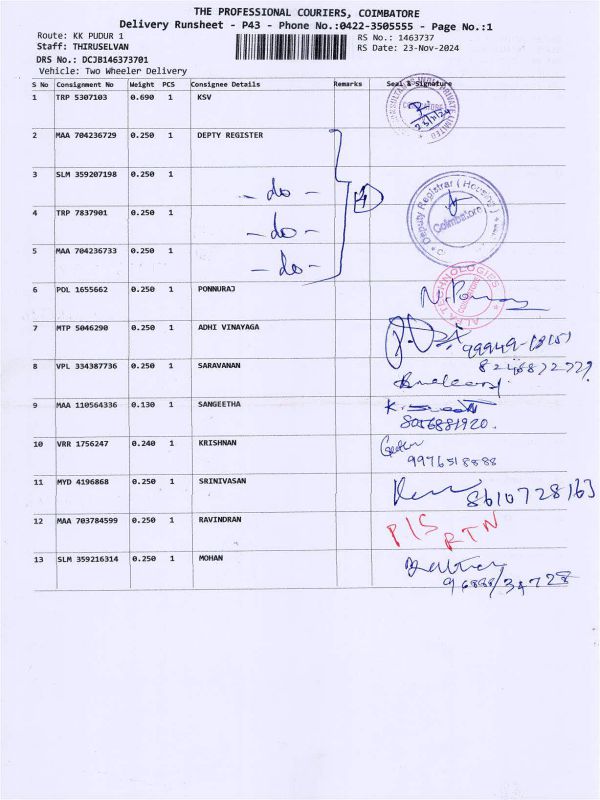 THE PROFESSIONAL COURIERS, COIMBATORE
Delivery Runsheet - P43 - Phone No.:0422-3505555 - Page No.:1
Route: KK PUDUR 1 RS No.: 1463737
Staff: THIRUSELVAN RS Date: 23-Nov-2024
DRS No.: DCJB146373701
Vehicle: Two Wheeler Delivery
S No Consignment No Weight PCS Consignee Details Remarks Seal & Signature
1 TRP 5307103 0.690 1 KSV
2 MAA 704236729 0.250 1 DEPTY REGISTER
3 SLM 359207198 0.250 1 - do -
4 TRP 7837901 0.250 1 - do -
5 MAA 704236733 0.250 1 - do -
4
Deputy Registrar (Housing)
Coimbatore
ALFA TECHNOLOGIES
6 POL 1655662 0.250 1 PONNURAJ
7 MTP 5046290 0.250 1 ADHI VINAYAGA
8 VPL 334387736 0.250 1 SARAVANAN
9 MAA 110564336 0.130 1 SANGEETHA
8056881920.
10 VRR 1756247 0.240 1 KRISHNAN
9976518888
11 MYD 4196868 0.250 1 SRINIVASAN 8610728163
12 MAA 703784599 0.250 1 RAVINDRAN P/S RTN
13 SLM 359216314 0.250 1 MOHAN